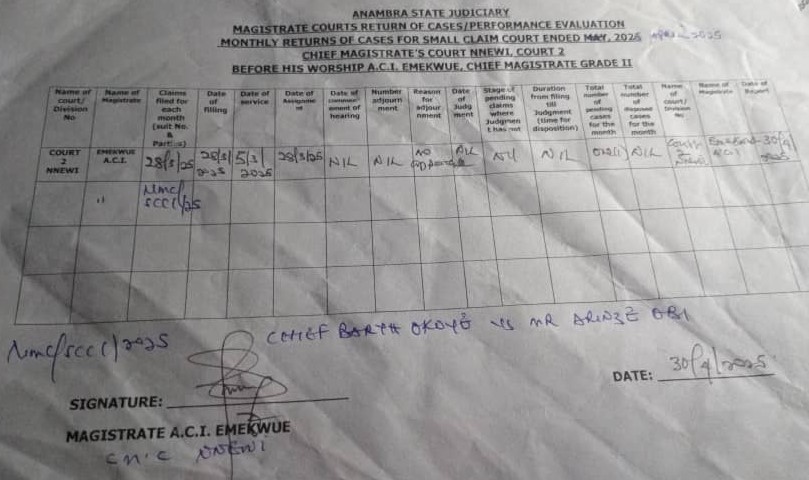 ANAMBRA STATE JUDICIARY
MAGISTRATE COURTS RETURN OF CASES/PERFORMANCE EVALUATION
MONTHLY RETURNS OF CASES FOR SMALL CLAIM COURT ENDED MAY, 2025 APRIL 2025
CHIEF MAGISTRATE'S COURT NNEWI, COURT 2
BEFORE HIS WORSHIP A.C.I. EMEKWUE, CHIEF MAGISTRATE GRADE II
Name of court/ Division No
Name of Magistrate
Claims filed for each month (suit No. & Parties)
Date of filling
Date of service
Date of Assignme nt
Date of commen- ement of hearing
Number adjourn ment
Reason for adjour nment
Date of Judg ment
Stage of pending claims where Judgmen t has not
Duration from filing till Judgment (time for disposition)
Total number of pending cases for the month
Total number of disposed cases for the month
Name of court/ Division No
Name of Magistrate
Date of Report
COURT 2 NNEWI
EMEKWUE A.C.I.
28/3/25
28/3/2025
5/3/2025
28/3/25
NIL
NIL
NO
NIL
Nil
NIL
NIL
Court 2 Nnewi
Emekwue A.C.I
30/4/2025
"
NMC/SCC1/25
NMC/SCC1/2025
CHIEF BARTH OKOYE VS MR ARINZE OBI
SIGNATURE:
DATE: 30/4/2025
MAGISTRATE A.C.I. EMEKWUE
CM.C NNEWI